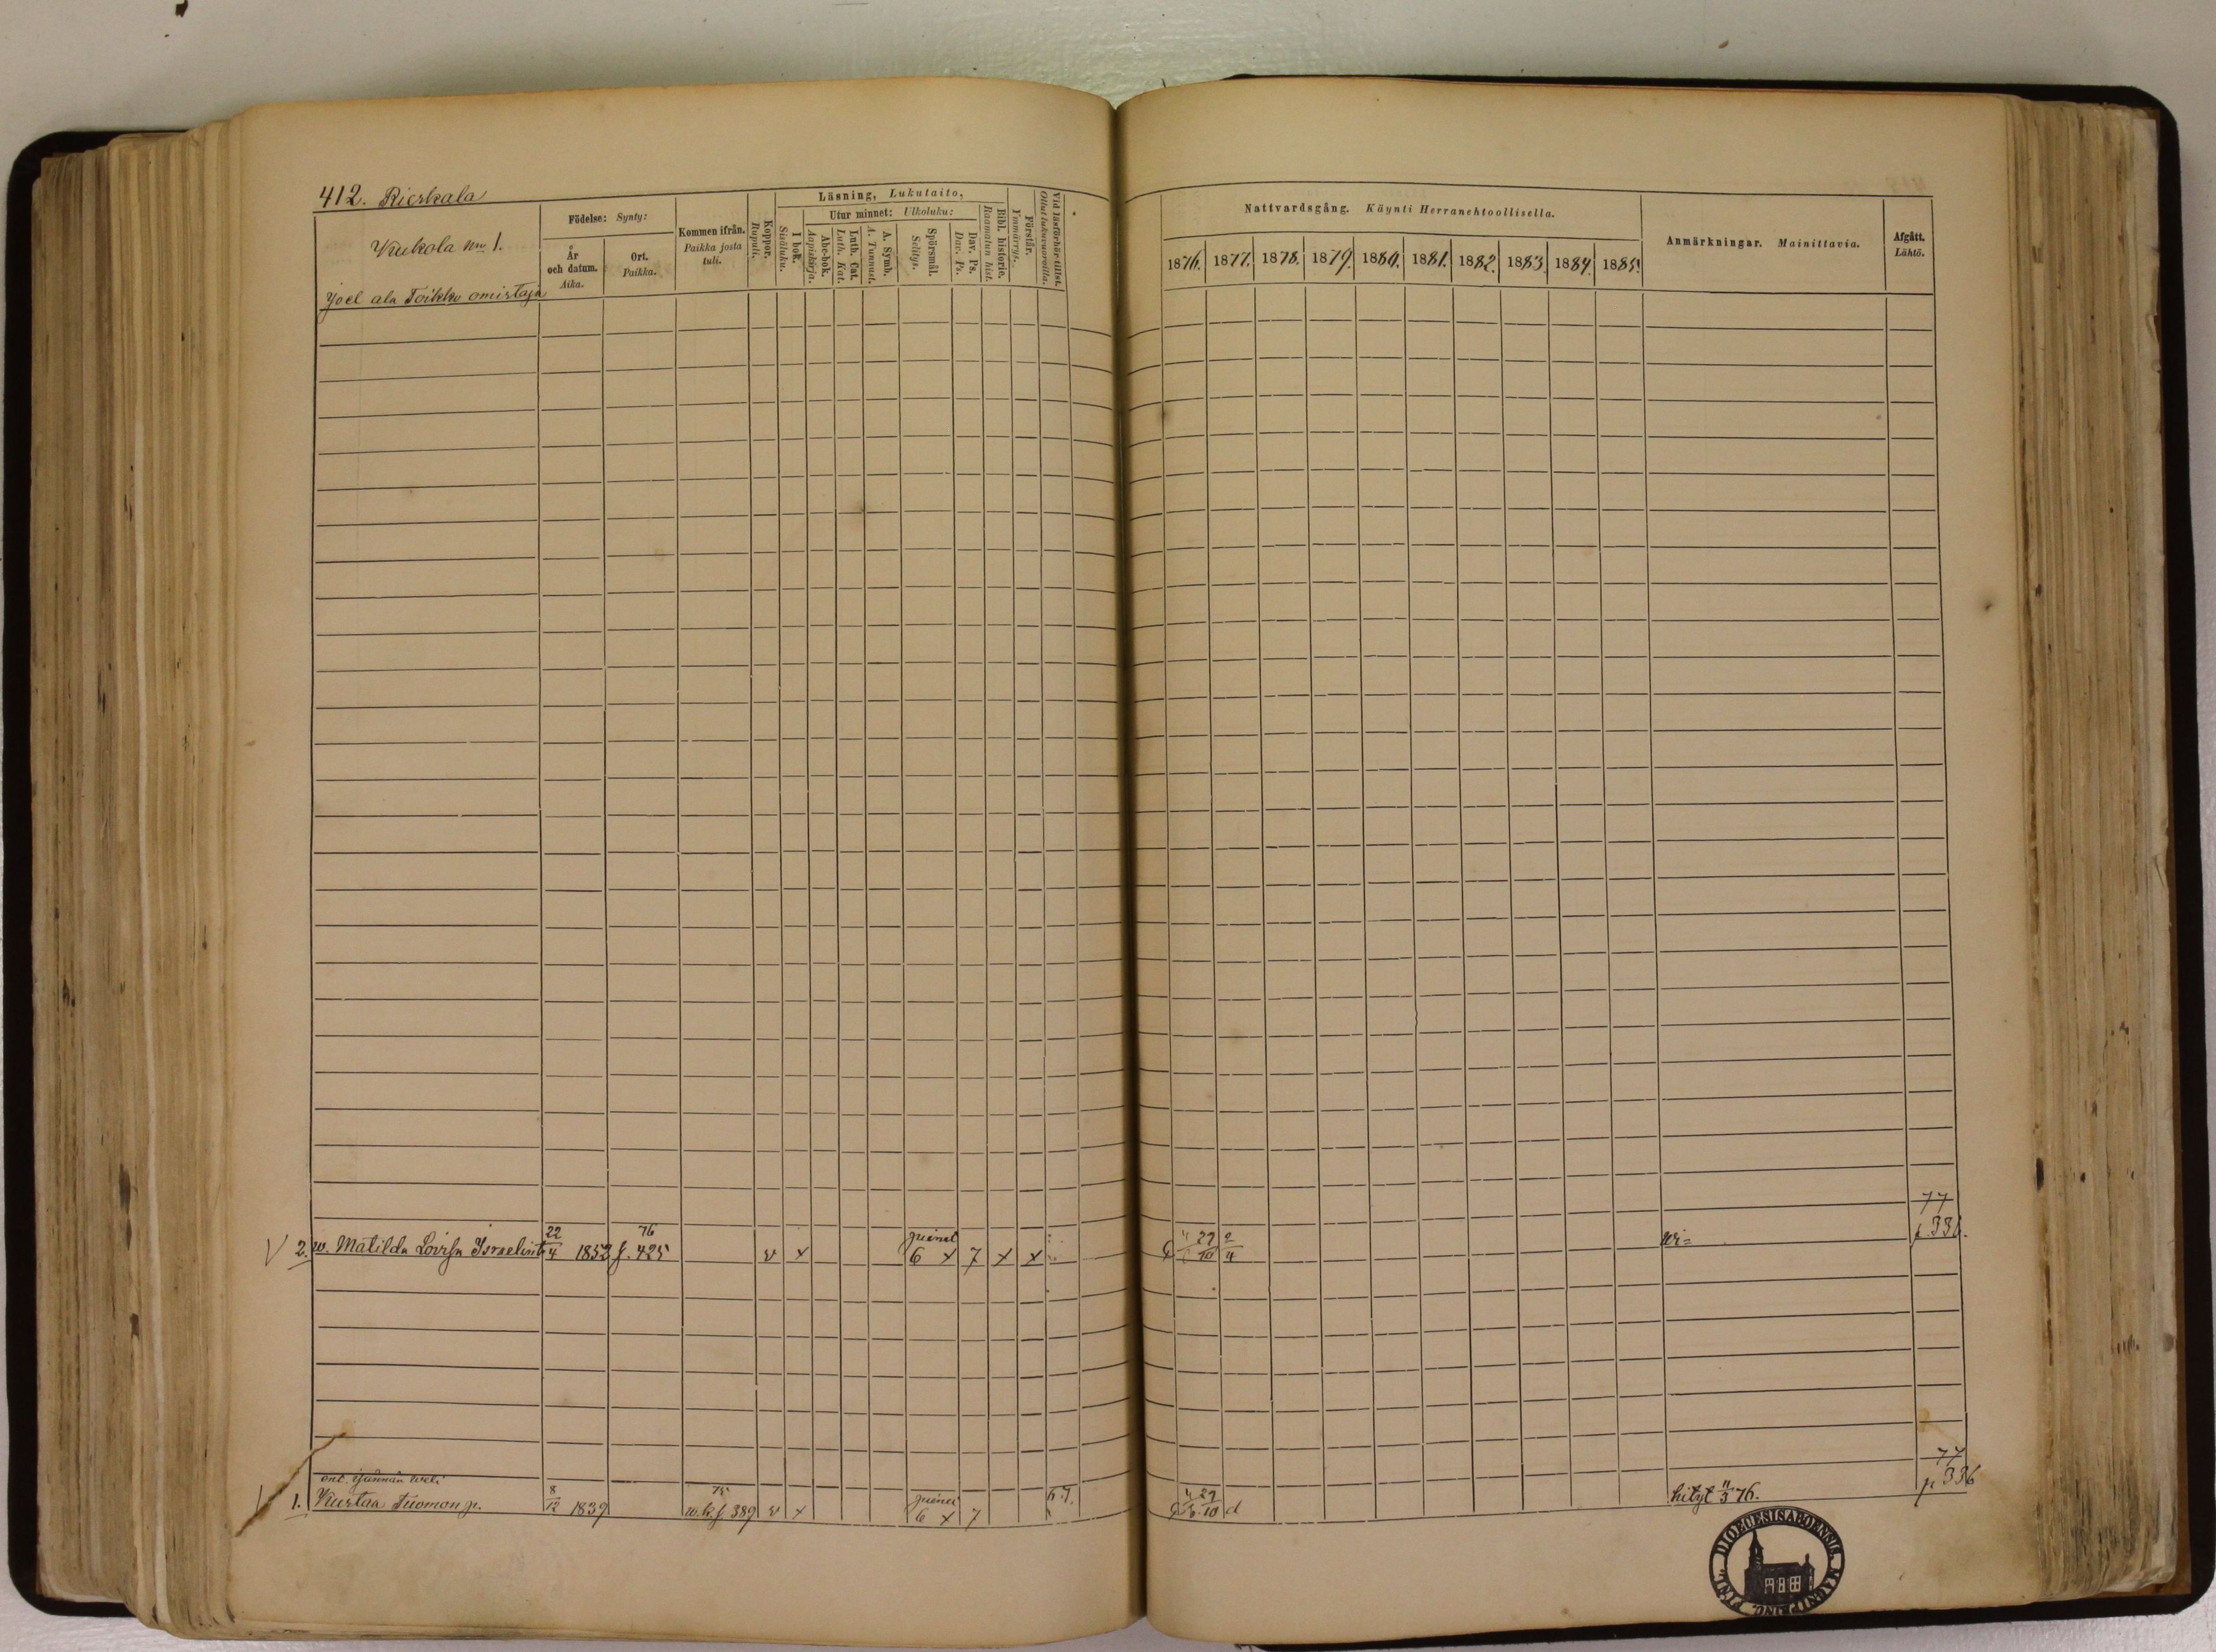 412. Rieskala
Kukola No 1.
Joel ala Toikko omistaja
Födelse: Synty:
År och datum. Aika.
Ort. Paikka.
Kommen ifrån. Paikka josta tuli.
Koppor. Rupuli.
Läsning, Lukutaito,
I bok. Sisäluku.
Utur minnet: Ulkoluku:
Abc-bok. Aapiskirja.
Luth. Cat. Luth. Kat.
A. Symb. A. Tunnust.
Spörsmål. Selitys.
Dav. Ps. Dav. Ps.
Bibl. historie. Raamatun hist.
Förstår. Ymmärrys.
Vid läsförhör tillst. Ollut lukuvuoroilla.
Nattvardsgång. Käynti Herranehtoollisella.
1876. 1877. 1878. 1879. 1880. 1881. 1882. 1883. 1884. 1885.
Anmärkningar. Mainittavia.
Afgått. Lähtö.
2. w. Matilda Lovisa Israelint 22/4 1852 76 f. 425 v x 6 x 7 x x 29/10 2/4 77 p. 336.
ent. isännän veli
1. Kustaa Tuomon p. 8/12 1839 75 w.k.f. 389 v x 6 x 7 29/10 d 76. 77 p 336
DIOECESIS ABOENSIS